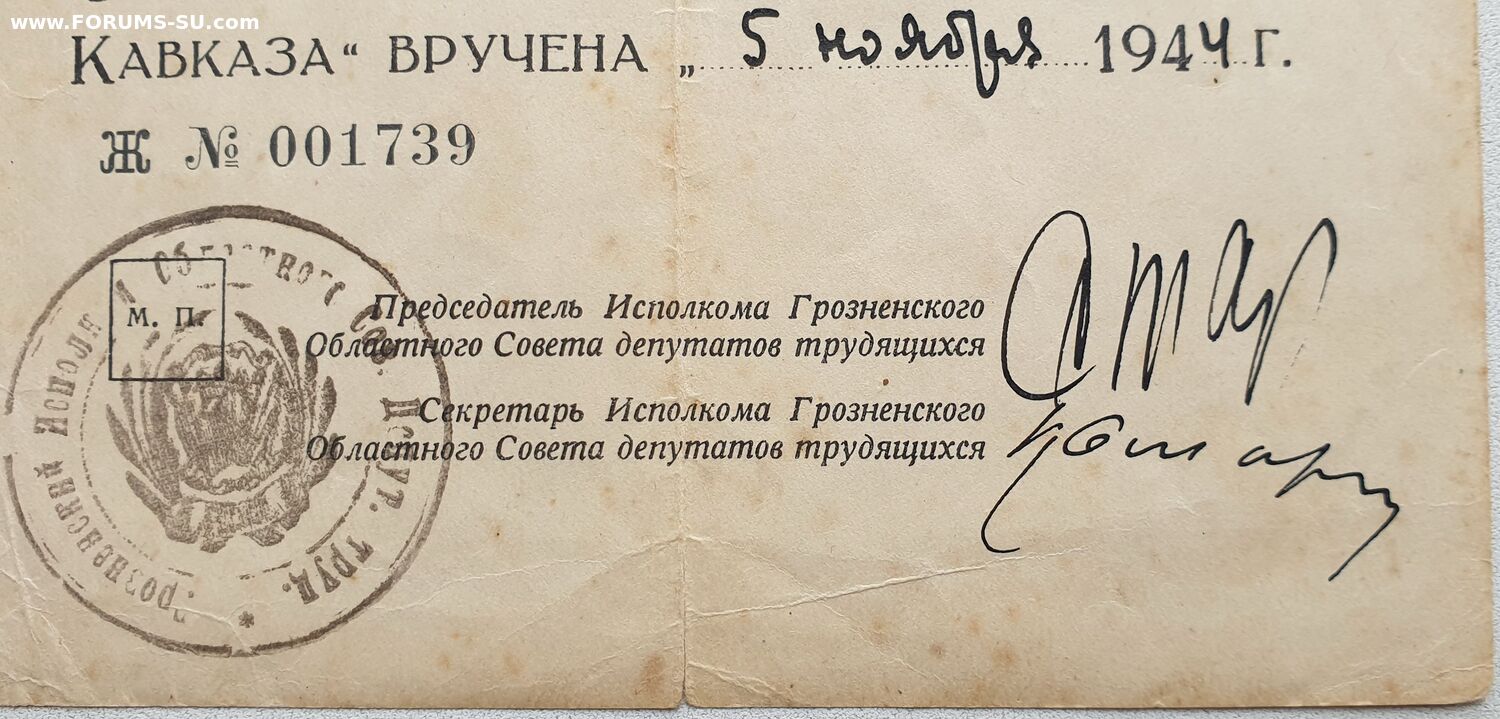 www.FORUMS-SU.com
КАВКАЗА“ ВРУЧЕНА „ 5 ноября 1944 г.
Ж № 001739
М. П.
Председатель Исполкома Грозненского
Областного Совета депутатов трудящихся
Секретарь Исполкома Грозненского
Областного Совета депутатов трудящихся
Грозненский Исполк Областного Сов. Депут. труд. *